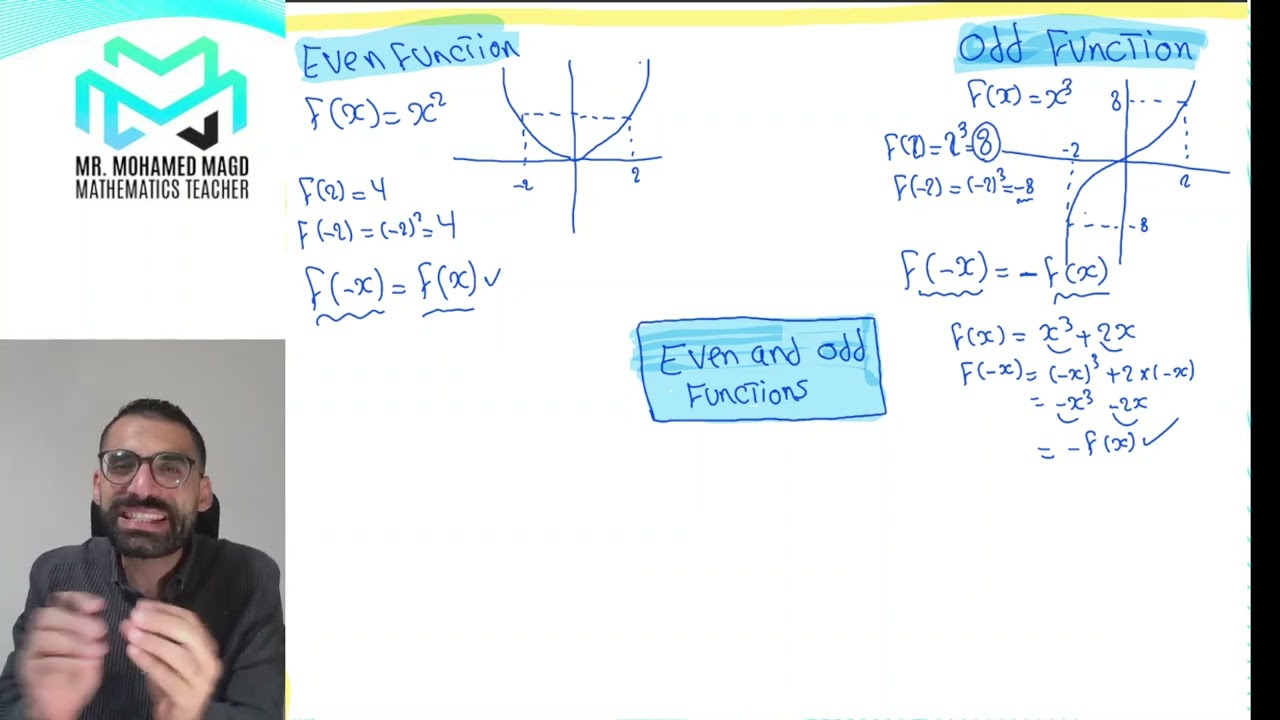 MR. MOHAMED MAGD
MATHEMATICS TEACHER
Even Function
F(x) = x²
-2
2
F(2) = 4
F(-2) = (-2)² = 4
F(-x) = F(x) ✓
Even and odd
Functions
Odd Function
F(x) = x³
8
F(2) = 2³ = 8
-2
F(-2) = (-2)³ = -8
2
-8
F(-x) = -F(x)
F(x) = x³ + 2x
F(-x) = (-x)³ + 2 × (-x)
= -x³ -2x
= -F(x) ✓